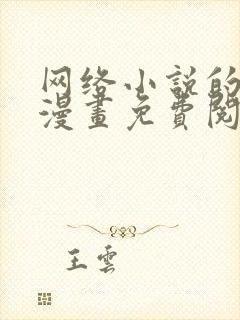 网络小说的
漫畫免費閱
王雲